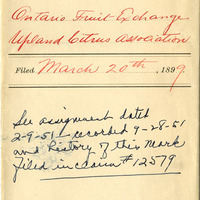 Ontario Fruit Exchange
Upland Citrus Association
Filed March 20th, 1899.
See assignment dated
2-9-51 - recorded 9-28-51
and history of this Mark
filed in claim #12579